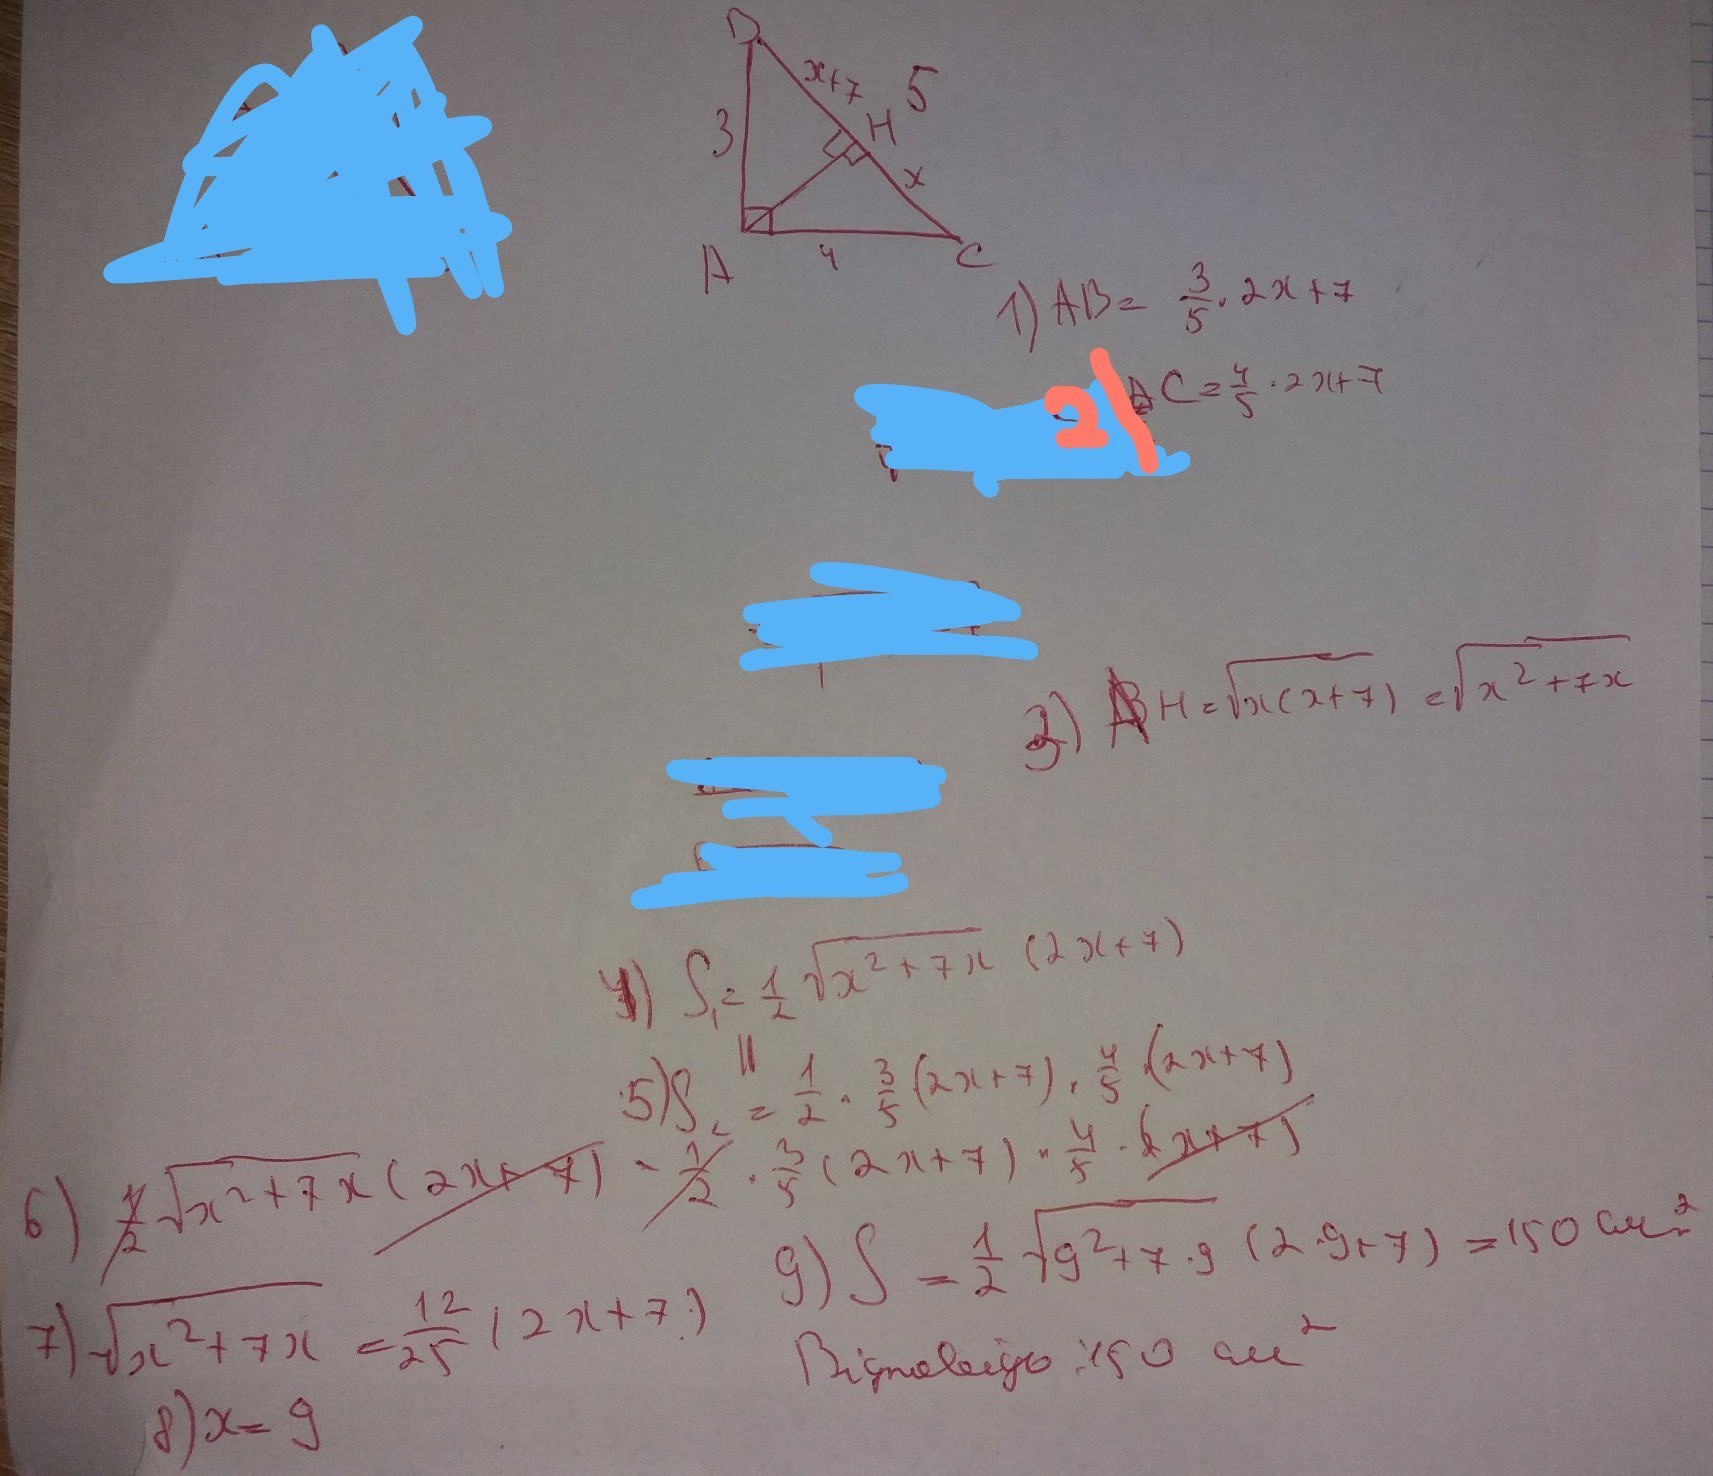 B
x+7 5
3 H
x
A 4 C
1) AB = 3/5 · 2x+7
2) AC = 4/5 · 2x+7
3) AH = √x(x+7) = √x²+7x
4) S₁ = 1/2 √x²+7x (2x+7)
||
5) S₂ = 1/2 · 3/5 (2x+7) · 4/5 · (2x+7)
6) 1/2 √x²+7x (2x+7) = 1/2 · 3/5 (2x+7) · 4/5 · (2x+7)
7) √x²+7x = 12/25 (2x+7)
8) x = 9
9) S = 1/2 √9²+7·9 (2·9+7) = 150 см²
Відповідь: 150 см²